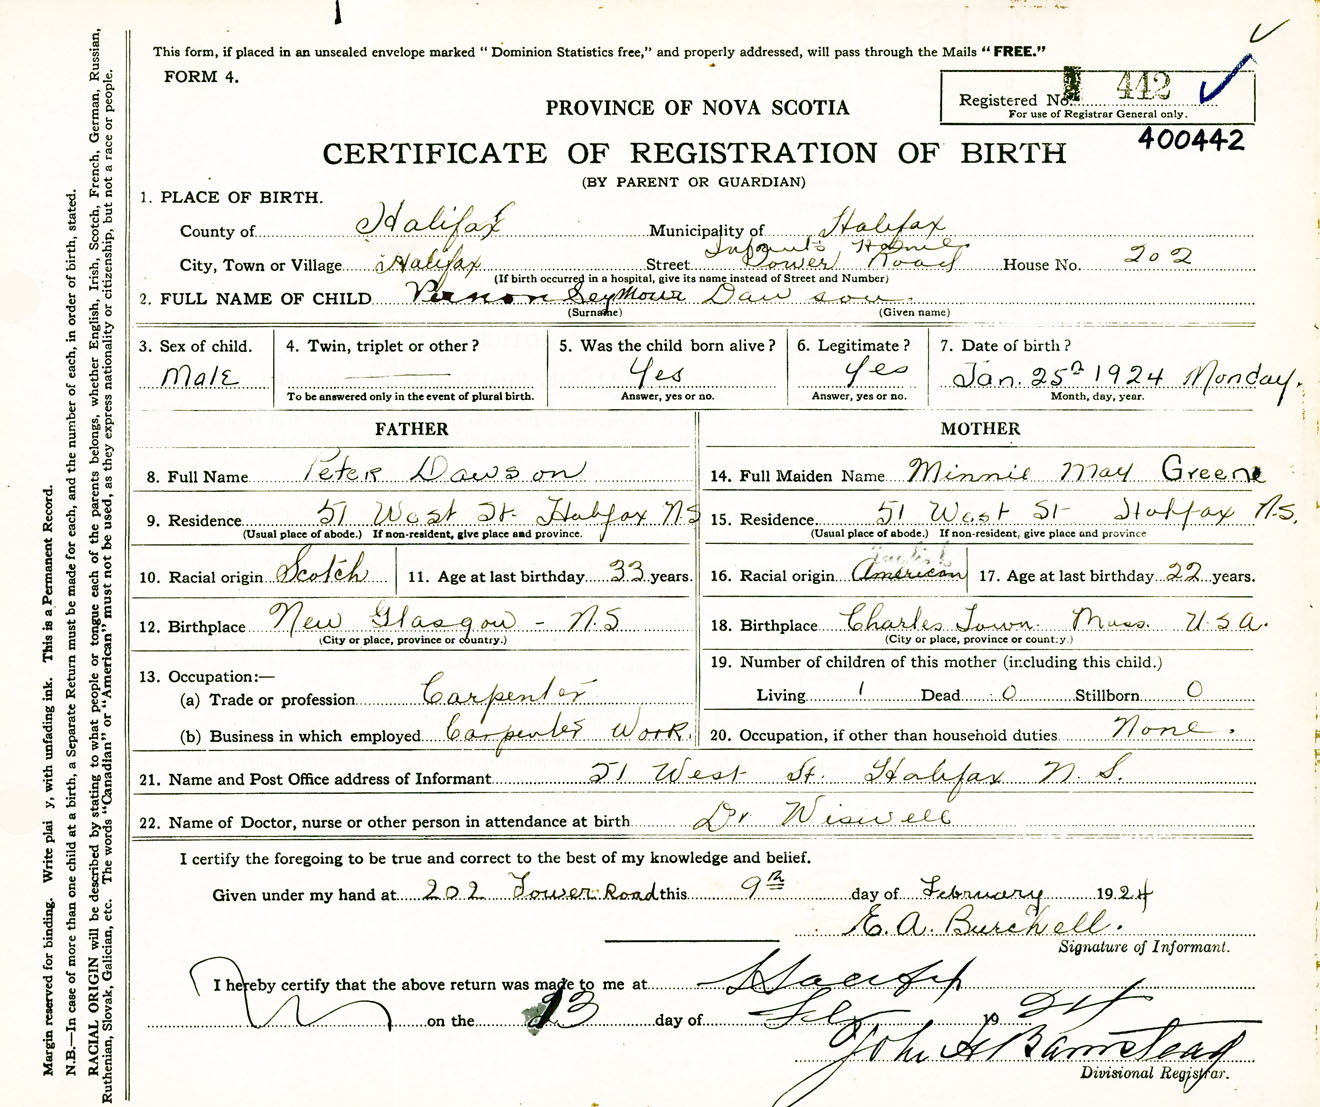 This form, if placed in an unsealed envelope marked "Dominion Statistics free," and properly addressed, will pass through the Mails "FREE."
FORM 4.
Registered No. 442
For use of Registrar General only.
400442
PROVINCE OF NOVA SCOTIA
CERTIFICATE OF REGISTRATION OF BIRTH
(BY PARENT OR GUARDIAN)
1. PLACE OF BIRTH.
County of Halifax Municipality of Halifax
Infants Home
City, Town or Village Halifax Street Tower Road House No. 202
(If birth occurred in a hospital, give its name instead of Street and Number)
2. FULL NAME OF CHILD Vernon Seymour Dawson.
(Surname) (Given name)
3. Sex of child. 4. Twin, triplet or other? 5. Was the child born alive? 6. Legitimate? 7. Date of birth?
Male Yes Yes Jan. 25th 1924 Monday.
To be answered only in the event of plural birth. Answer, yes or no. Answer, yes or no. Month, day, year.
FATHER MOTHER
8. Full Name Peter Dawson 14. Full Maiden Name Minnie May Greene
9. Residence 51 West St. Halifax N.S 15. Residence 51 West St- Halifax N.S.
(Usual place of abode.) If non-resident, give place and province. (Usual place of abode.) If non-resident, give place and province
English
10. Racial origin Scotch 11. Age at last birthday 33 years. 16. Racial origin American 17. Age at last birthday 22 years.
12. Birthplace New Glasgow - N.S 18. Birthplace Charles Town. Mass. U.S.A.
(City or place, province or country.) (City or place, province or country.)
19. Number of children of this mother (including this child.)
13. Occupation:—
(a) Trade or profession Carpenter Living 1 Dead 0 Stillborn 0
(b) Business in which employed Carpenter Work. 20. Occupation, if other than household duties None.
21. Name and Post Office address of Informant 51 West St. Halifax N.S.
22. Name of Doctor, nurse or other person in attendance at birth Dr Wiswell
I certify the foregoing to be true and correct to the best of my knowledge and belief.
Given under my hand at 202 Tower Road this 9th day of February 1924
E. A. Burchell.
Signature of Informant.
I hereby certify that the above return was made to me at Halifax
on the 13 day of Feby 1924
John A Barnstead
Divisional Registrar.
Margin reserved for binding. Write plai y, with unfading ink. This is a Permanent Record.
N.B.—In case of more than one child at a birth, a Separate Return must be made for each, and the number of each, in order of birth, stated.
RACIAL ORIGIN will be described by stating to what people or tongue each of the parents belongs, whether English, Irish, Scotch, French, German, Russian,
Ruthenian, Slovak, Galician, etc. The words "Canadian" or "American" must not be used, as they express nationality or citizenship, but not a race or people.